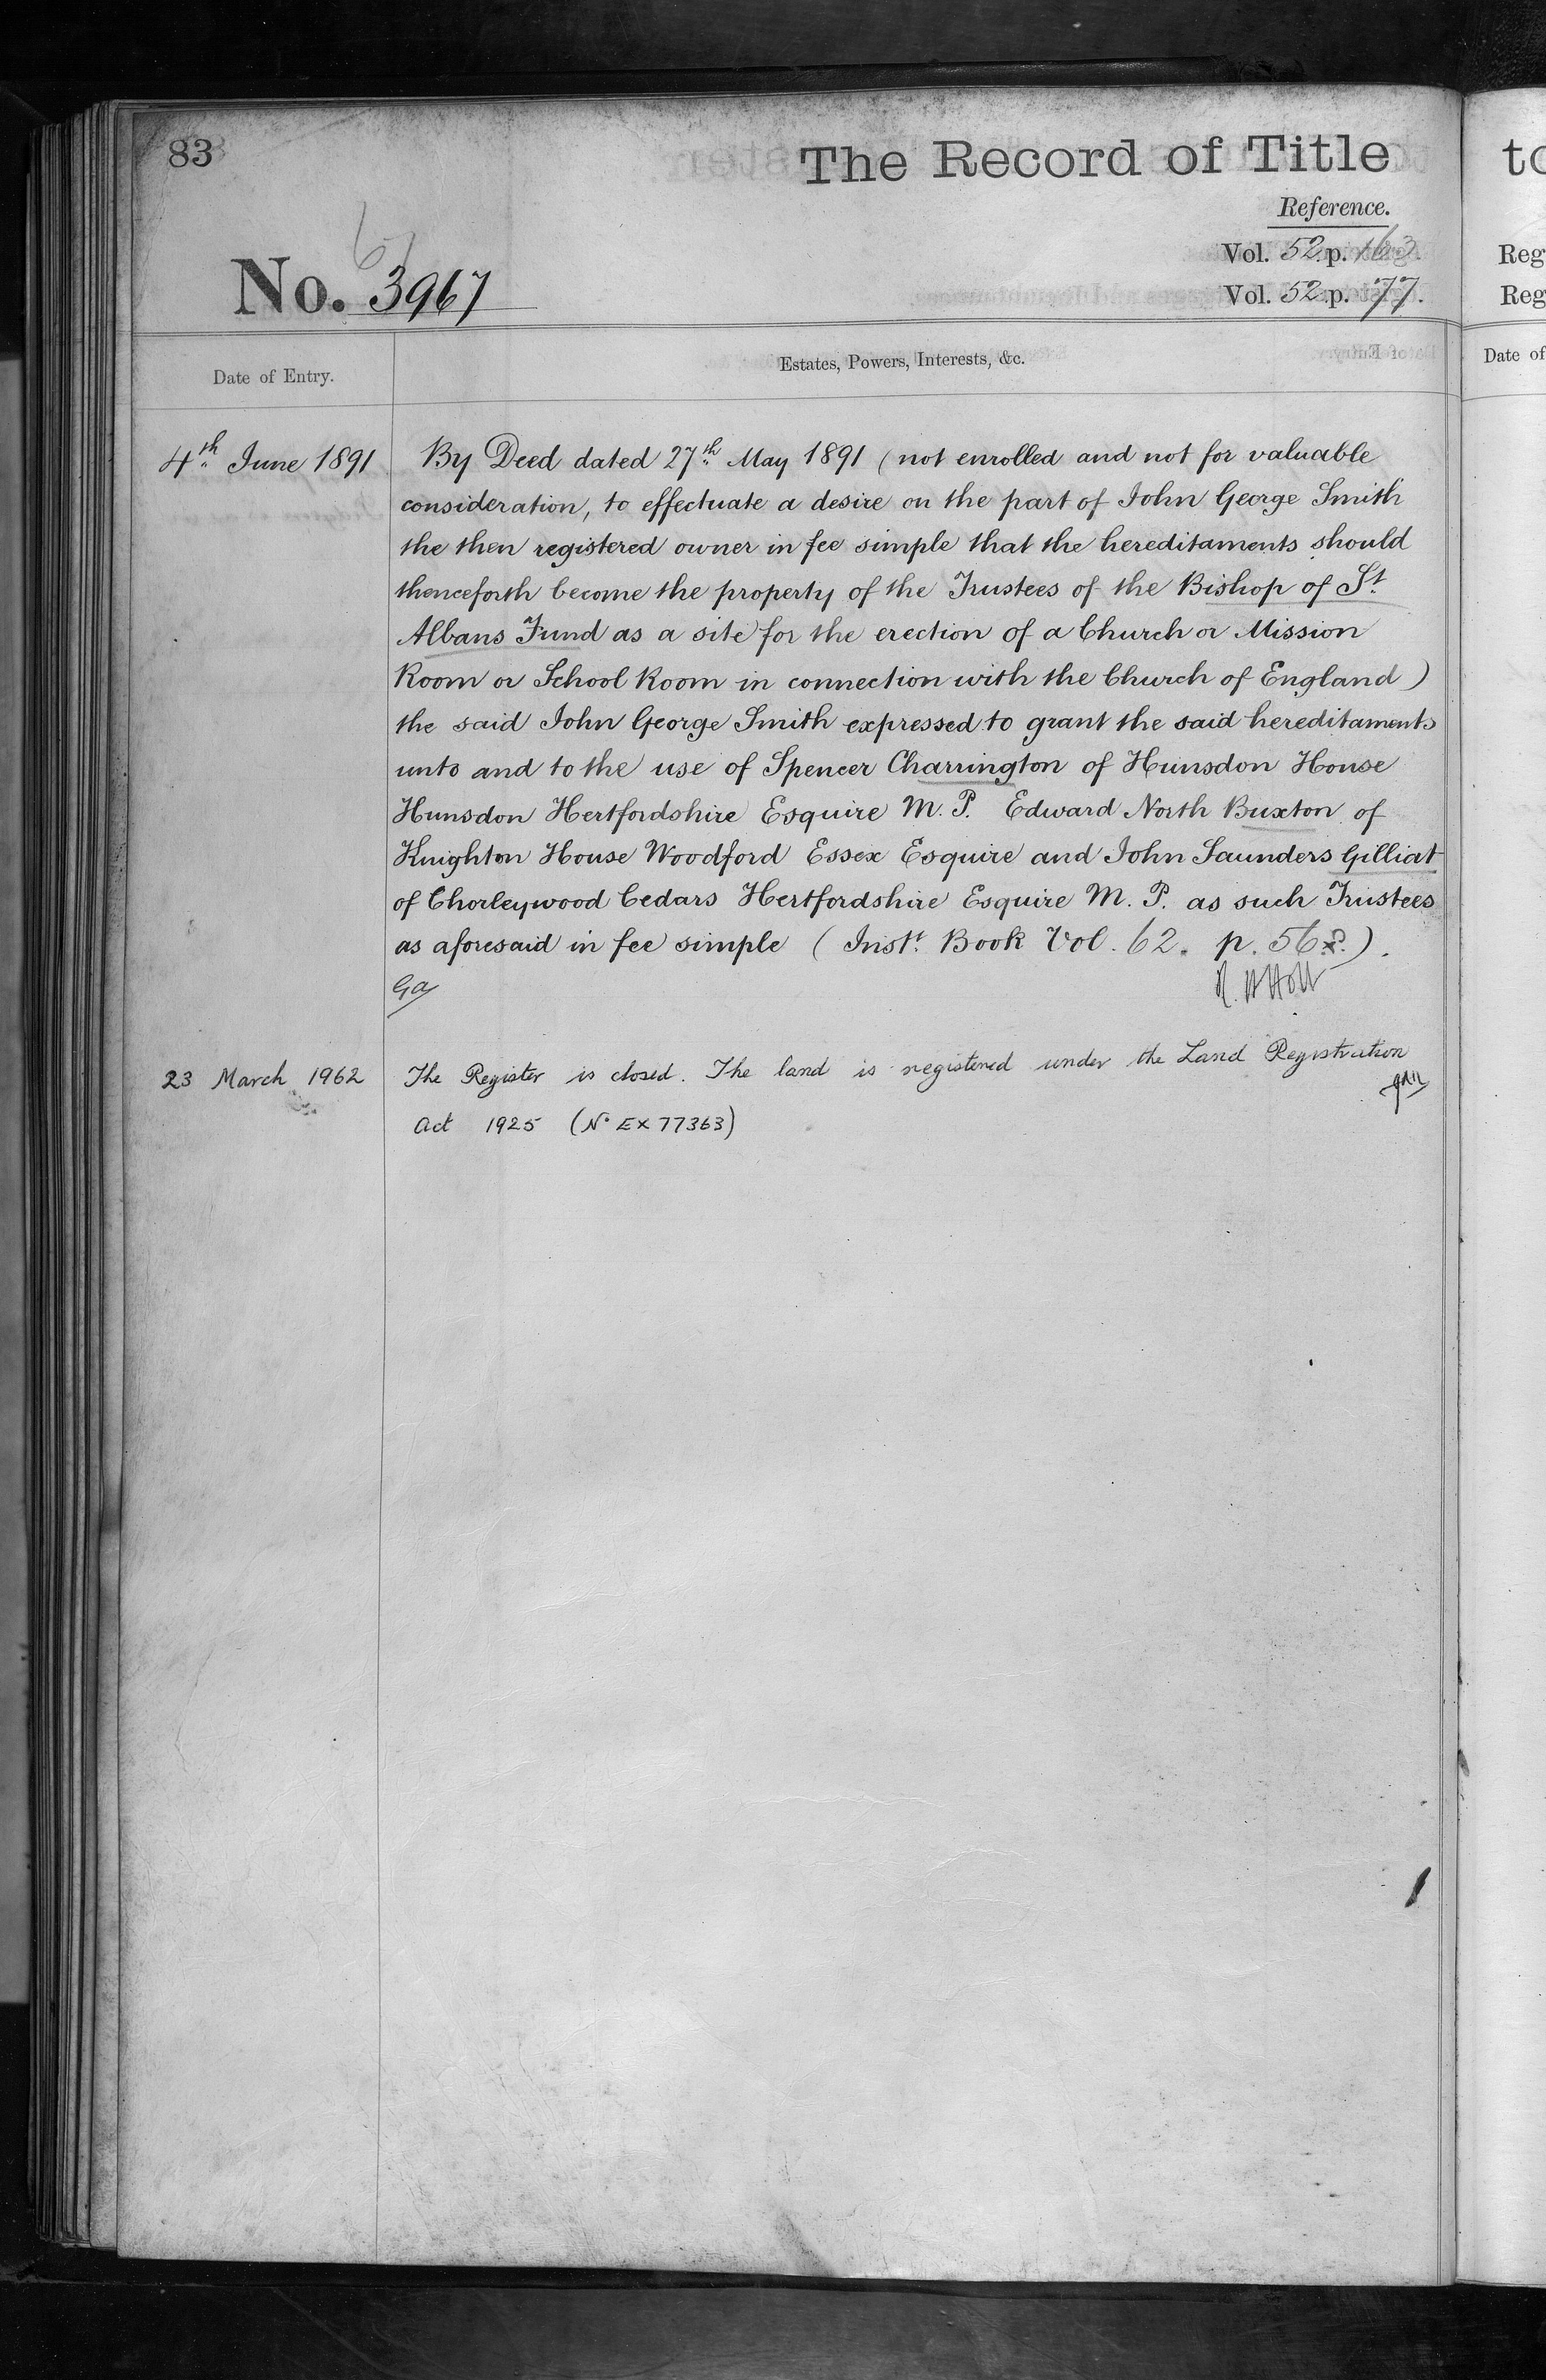 83
The Record of Title
Reference.
Vol. 52. p. 163.
Vol. 52. p. 77.
No. 3967
Date of Entry.
Estates, Powers, Interests, &c.
4th June 1891
By Deed dated 27th May 1891 (not enrolled and not for valuable
consideration, to effectuate a desire on the part of John George Smith
the then registered owner in fee simple that the hereditaments should
thenceforth become the property of the Trustees of the Bishop of St
Albans Fund as a site for the erection of a Church or Mission
Room or School Room in connection with the Church of England)
the said John George Smith expressed to grant the said hereditaments
unto and to the use of Spencer Charrington of Hunsdon House
Hunsdon Hertfordshire Esquire M. P. Edward North Buxton of
Knighton House Woodford Essex Esquire and John Saunders Gilliat
of Chorleywood Cedars Hertfordshire Esquire M. P. as such Trustees
as aforesaid in fee simple (Inst. Book Vol. 62. p. 56 ).
23 March 1962
The Register is closed. The land is registered under the Land Registration
Act 1925 (No EX 77363)
to
Reg
Reg
Date of